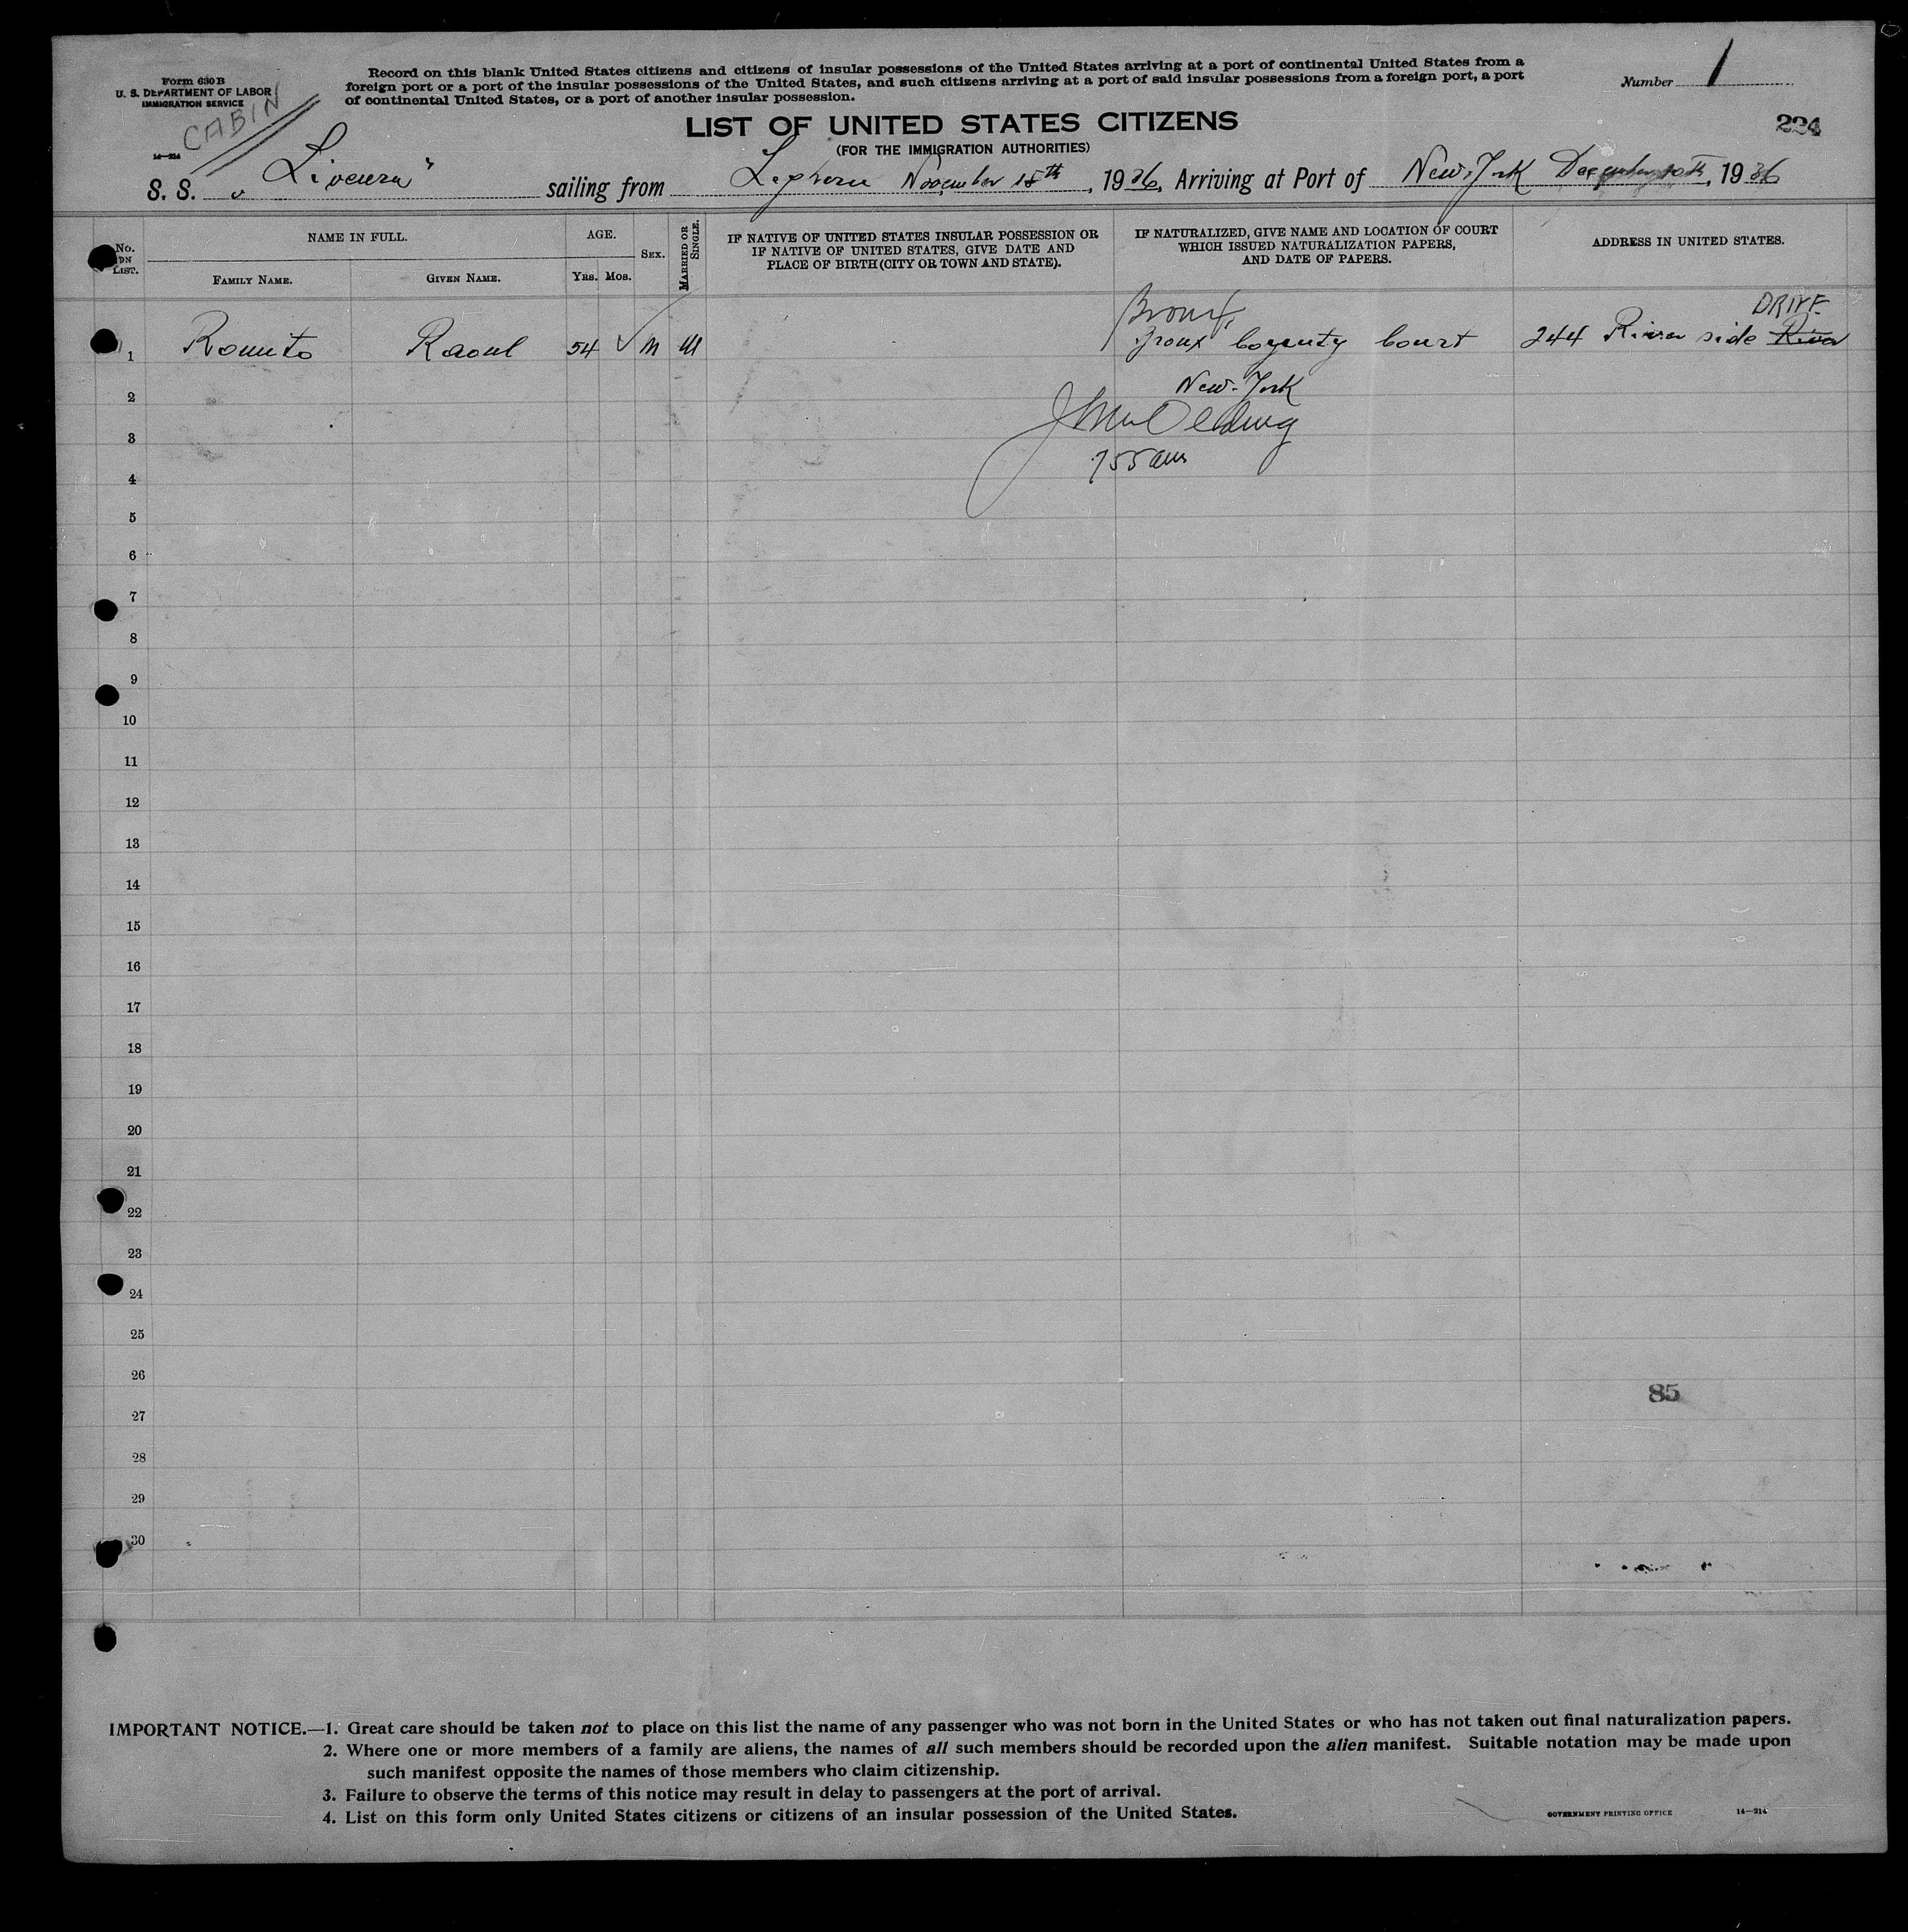 Form 630 B
U. S. DEPARTMENT OF LABOR
IMMIGRATION SERVICE
CABIN
14—214
Record on this blank United States citizens and citizens of insular possessions of the United States arriving at a port of continental United States from a
foreign port or a port of the insular possessions of the United States, and such citizens arriving at a port of said insular possessions from a foreign port, a port
of continental United States, or a port of another insular possession.
Number 1
224
LIST OF UNITED STATES CITIZENS
(FOR THE IMMIGRATION AUTHORITIES)
S. S. "Livenza" sailing from Leghorn November 18th, 1936, Arriving at Port of New-York December 10th, 1936
No. ON LIST.
NAME IN FULL.
FAMILY NAME.
GIVEN NAME.
AGE.
YRS. MOS.
SEX.
MARRIED OR SINGLE.
IF NATIVE OF UNITED STATES INSULAR POSSESSION OR
IF NATIVE OF UNITED STATES, GIVE DATE AND
PLACE OF BIRTH (CITY OR TOWN AND STATE).
IF NATURALIZED, GIVE NAME AND LOCATION OF COURT
WHICH ISSUED NATURALIZATION PAPERS,
AND DATE OF PAPERS.
ADDRESS IN UNITED STATES.
Bronx DRIVE
1 Romito Raoul 54 M M Bronx County Court 244 River side River
2 New-York
3
4
5
6
7
8
9
10
11
12
13
14
15
16
17
18
19
20
21
22
23
24
25
26
85
27
28
29
30
IMPORTANT NOTICE.—1. Great care should be taken not to place on this list the name of any passenger who was not born in the United States or who has not taken out final naturalization papers.
2. Where one or more members of a family are aliens, the names of all such members should be recorded upon the alien manifest. Suitable notation may be made upon
such manifest opposite the names of those members who claim citizenship.
3. Failure to observe the terms of this notice may result in delay to passengers at the port of arrival.
4. List on this form only United States citizens or citizens of an insular possession of the United States.
GOVERNMENT PRINTING OFFICE 14—214